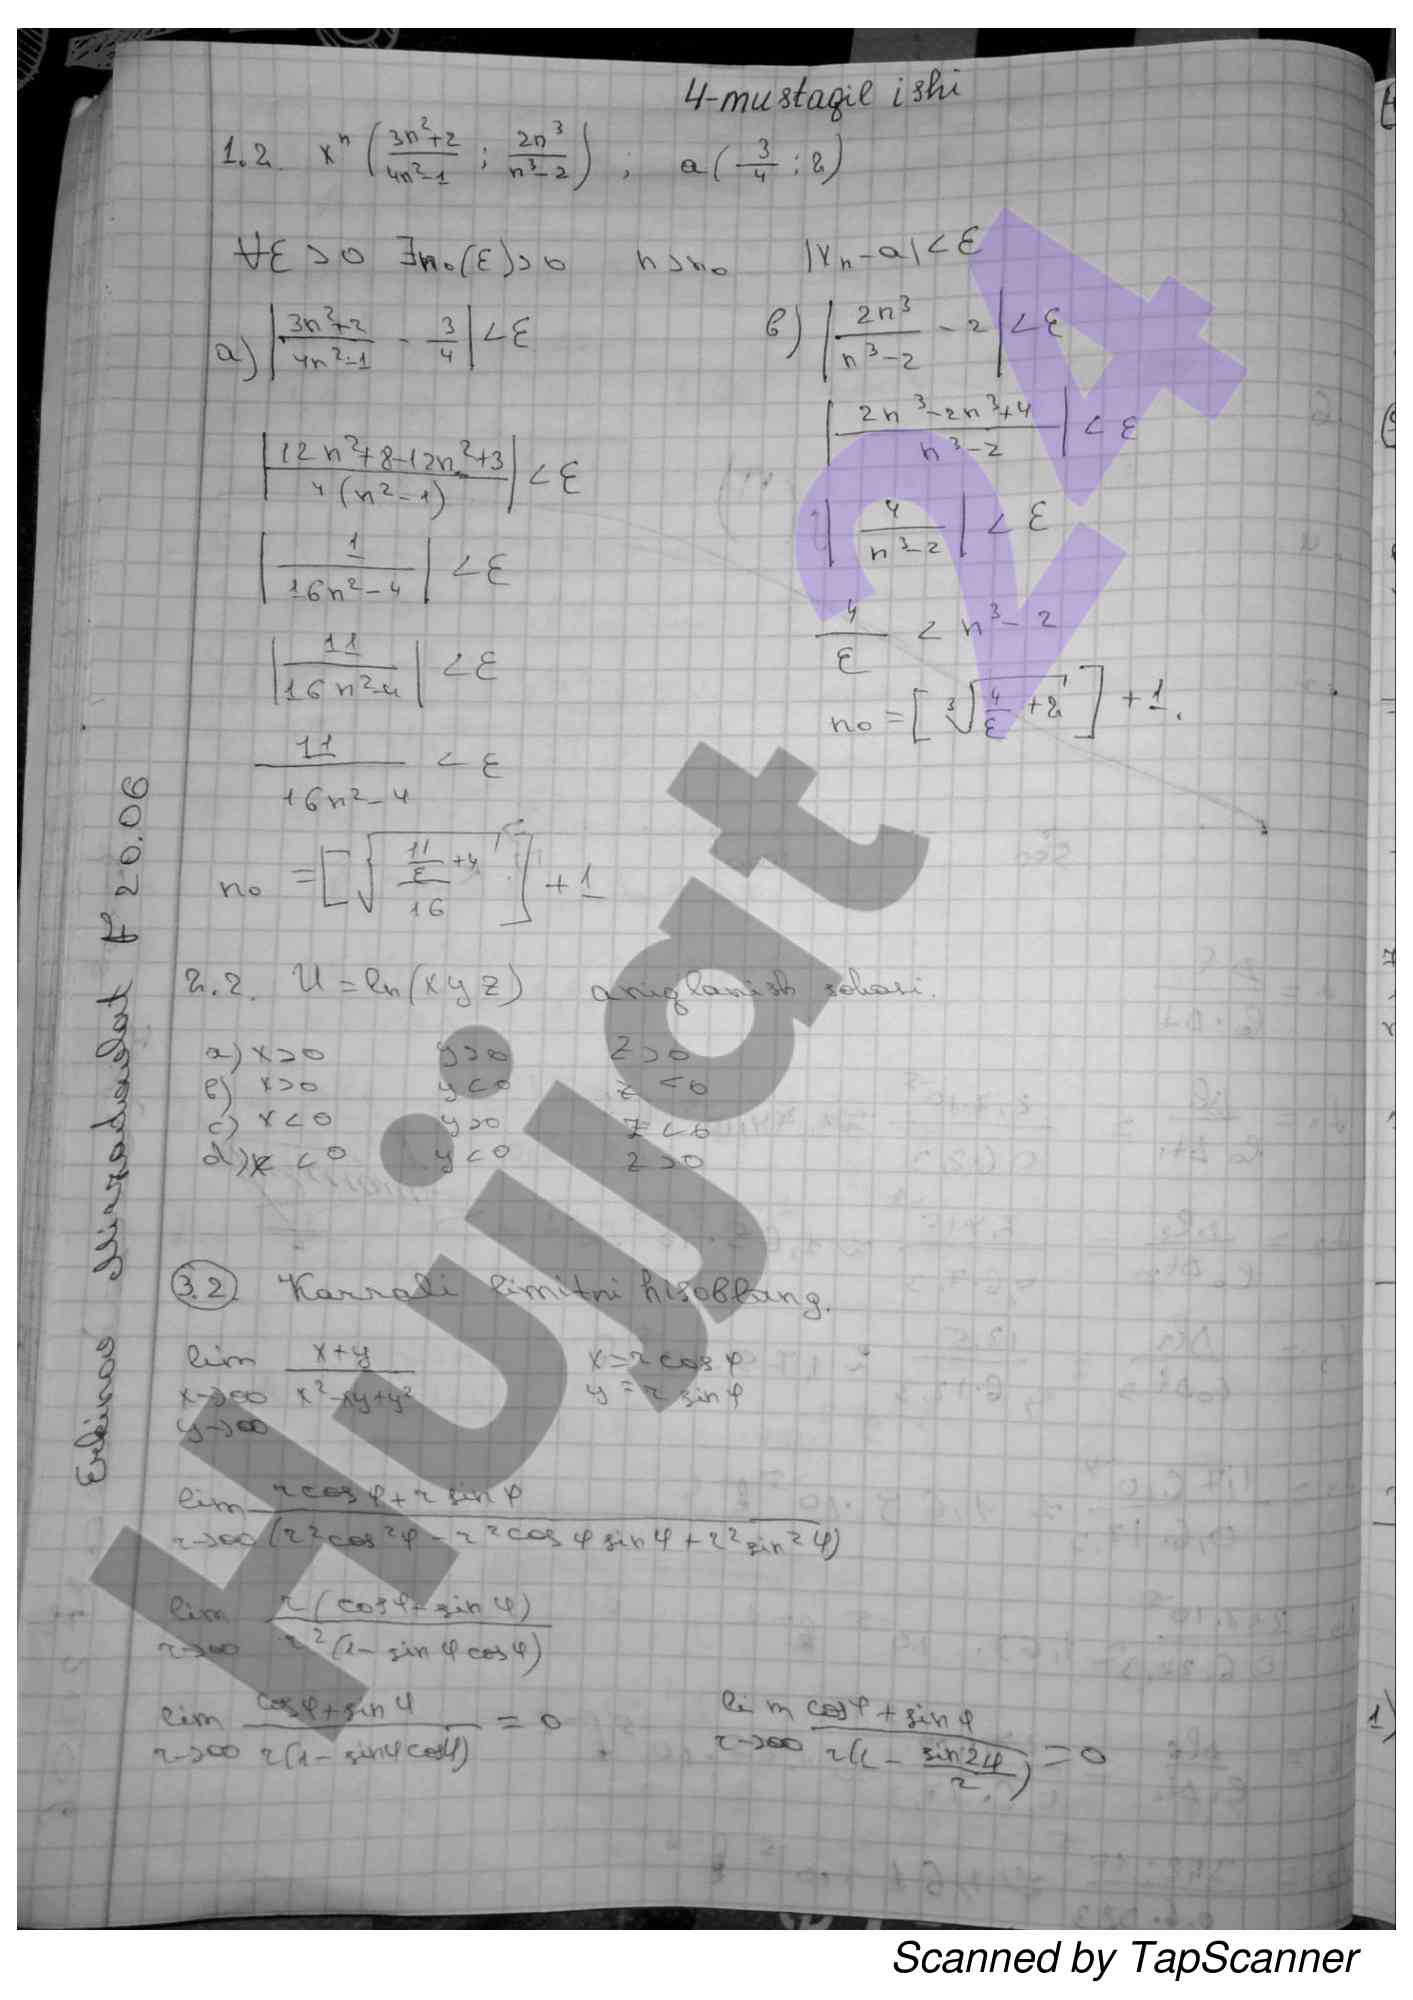 4-mustaqil ishi
1.2. xⁿ ( (3n²+2)/(4n²-1) ; 2n³/(n³-2) ) ; a ( 3/4 ; 2 )
∀ε > 0 ∃n₀(ε) > 0 n > n₀ |xₙ - a| < ε
a) | (3n²+2)/(4n²-1) - 3/4 | < ε
| (12n²+8-12n²+3)/(4(n²-1)) | < ε
| 1/(16n²-4) | < ε
| 11/(16n²-4) | < ε
11/(16n²-4) < ε
n₀ = [ √( (11/ε + 4)/16 ) ] + 1
в) | 2n³/(n³-2) - 2 | < ε
| (2n³-2n³+4)/(n³-2) | < ε
| 4/(n³-2) | < ε
4/ε < n³-2
n₀ = [ ∛( 4/ε + 2 ) ] + 1.
2.2. U = ln(xyz) aniqlanish sohasi.
a) x>0 y>0 z>0
в) x>0 y<0 z<0
c) x<0 y>0 z<0
d) x<0 y<0 z>0
3.2 Karrali limitni hisoblang.
lim x→∞ y→∞ (x+y)/(x²-xy+y²) x=r cosφ
y=r sinφ
lim r→∞ (r cosφ + r sinφ)/(r²cos²φ - r²cosφ sinφ + r²sin²φ)
lim r→∞ r(cosφ+sinφ)/(r²(1-sinφ cosφ))
lim r→∞ (cosφ+sinφ)/(r(1-sinφ cosφ)) = 0 lim r→∞ (cosφ+sinφ)/(r(1 - sin2φ/2)) = 0
Erkinov Mirzadavlat F 20.06
Hujjat 24
1)
Scanned by TapScanner